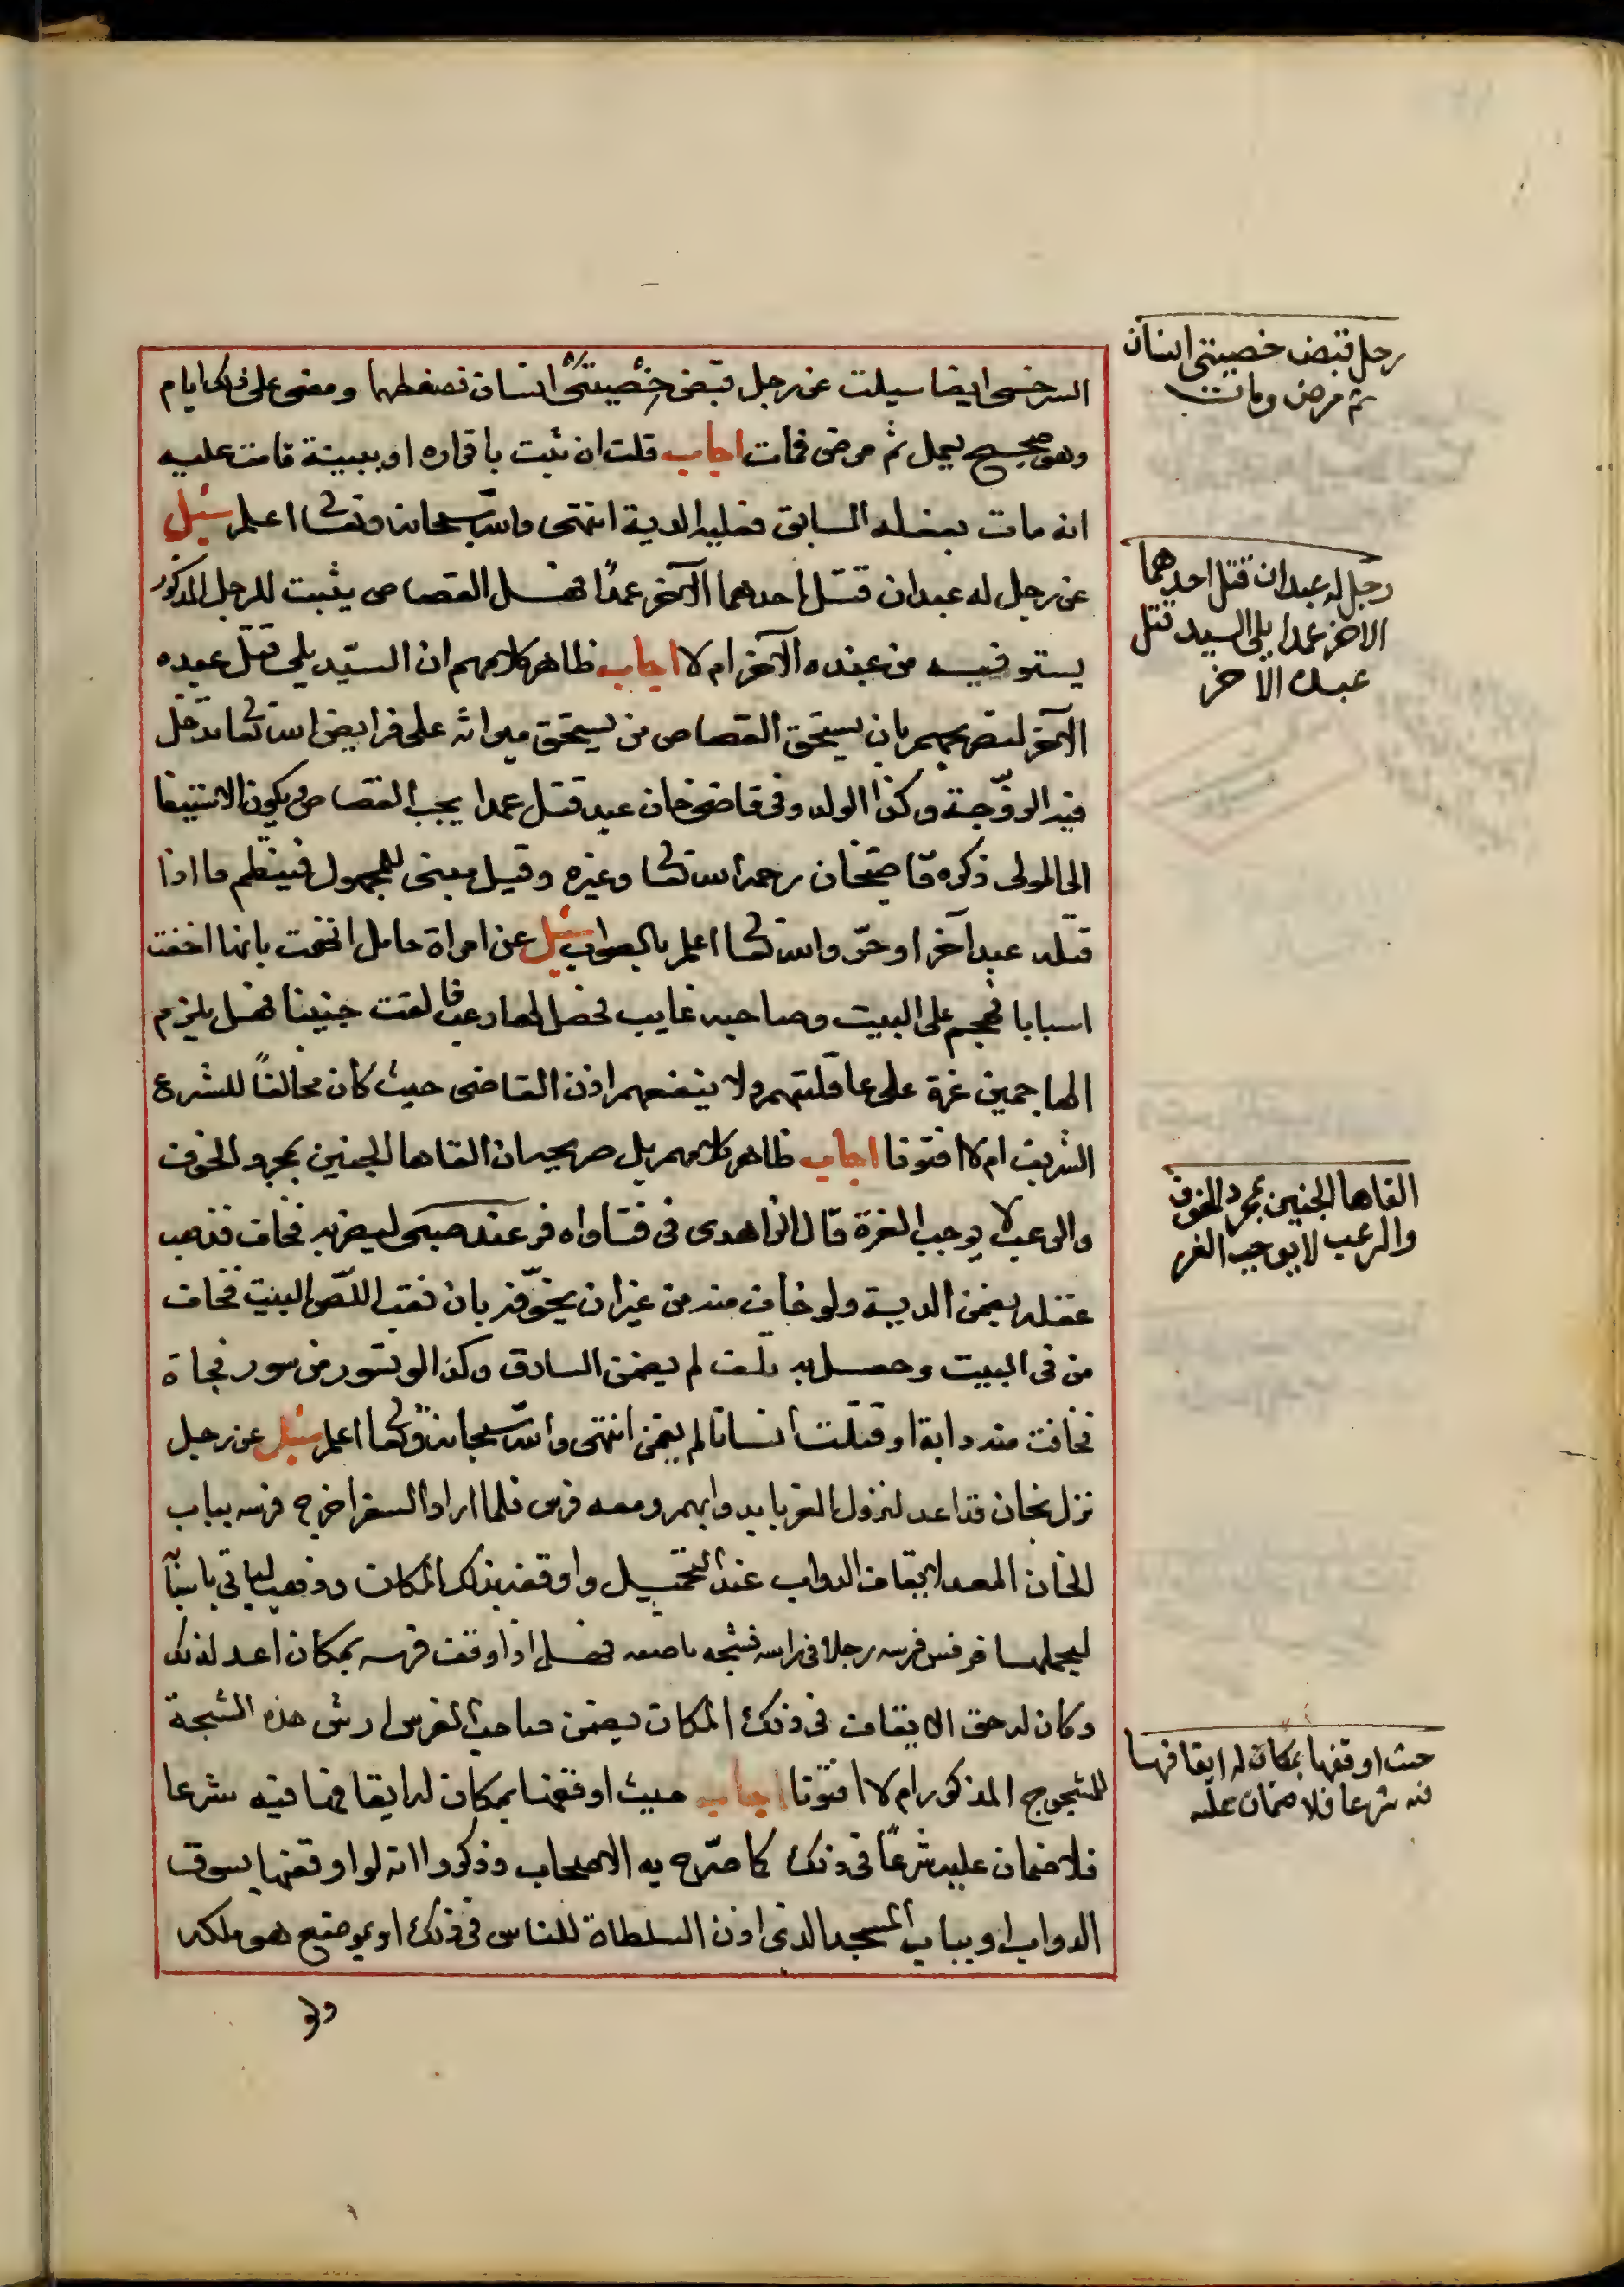 السرخسي ايضا سيلت عن رجل قبض خصيتي انسان فضغطهما ومضى على ذلك ايام
وهو صحيح يعمل ثم مرض فمات اجاب قلت ان ثبت باقراره او ببينة قامت عليه
انه مات بفعله السابق فعليه الدية انتهى والله سبحانه وتعالى اعلم سئل
عن رجل له عبدان قتل احدهما الآخر عمدًا فهل القصاص يثبت للرجل المذكور
يستوفيه من عبده الآخر ام لا اجاب ظاهر كلامهم ان السيّد يلي قتل عبده
الآخر لتصريحهم بان يستحق القصاص من يستحق ميراثه على فرايض الله تعالى تدخل
فيه الزوجة وكذا الولد وفي قاضي خان عبد قتل عمدا يجب القصاص ويكون الاستيفا
الى المولى ذكره قاضيخان رحمه الله تعالى وغيره وقيل مبني للمجهول فينظم ما اذا
قتله عبد آخر او حرّ والله تعالى اعلم بالصواب سئل عن امراة حامل اتهمت بانها اخفت
اسبابا فهجم على البيت وصاحبه غايب فحصل لها رعب فالقت جنينا فهل يلزم
الهاجمين غرة على عاقلتهم ولا ينفعهم اذن القاضي حيث كان مخالفًا للشرع
الشريف ام لا افتونا اجاب ظاهر كلامهم بل صريحه ان القاها الجنين بمجرد الخوف
والرعب لا يوجب الغرة قال الزاهدي في فتاواه فر عنده صبي ليضربه فخاف فذهب
عقله يضمن الدية ولو خاف منه من غير ان يخوّفه بان نقب اللصّ البيت فخاف
من في البيت وحصل به تلف لم يضمن السارق وكذا لو تسور من سور فجاة
فخافت منه دابة او قتلت انسانا لم يضمن انتهى والله سبحانه وتعالى اعلم سئل عن رجل
نزل بخان قد اعد لنزول الغربا بدوابهم ومعه فرس فلما اراد السفر اخرج فرسه بباب
الخان المعد لايقاف الدواب عند التحميل واوقفه بذلك المكان وذهب لياتي باشيآ
ليحملها فرفس فرسه رجلا في راسه فشجه ناصعه فهل اذا وقف فرسه بمكان اعد لذلك
وكان له حق الايقاف في ذلك المكان يضمن صاحب الفرس ارش هذه الشجة
للمشجوج المذكور ام لا افتونا اجاب حيث اوقفها بمكان له ايقافها فيه شرعا
فلا ضمان عليه شرعًا في ذلك كما صرّح به الاصحاب وذكروا انه لو اوقفها بسوق
الدواب او بباب المسجد الذي اذن السلطان للناس في ذلك او بموضع هو ملكه
رجل قبض خصيتي انسان
ثم مرض ومات
رجل له عبدان قتل احدهما
الاخر عمدا يلي السيد قتل
عبده الاخر
القاها الجنين بمجرد الخوف
والرعب لا يوجب الغرر
حيث اوقفها بمكان له ايقافها
فيه شرعا فلا ضمان عليه